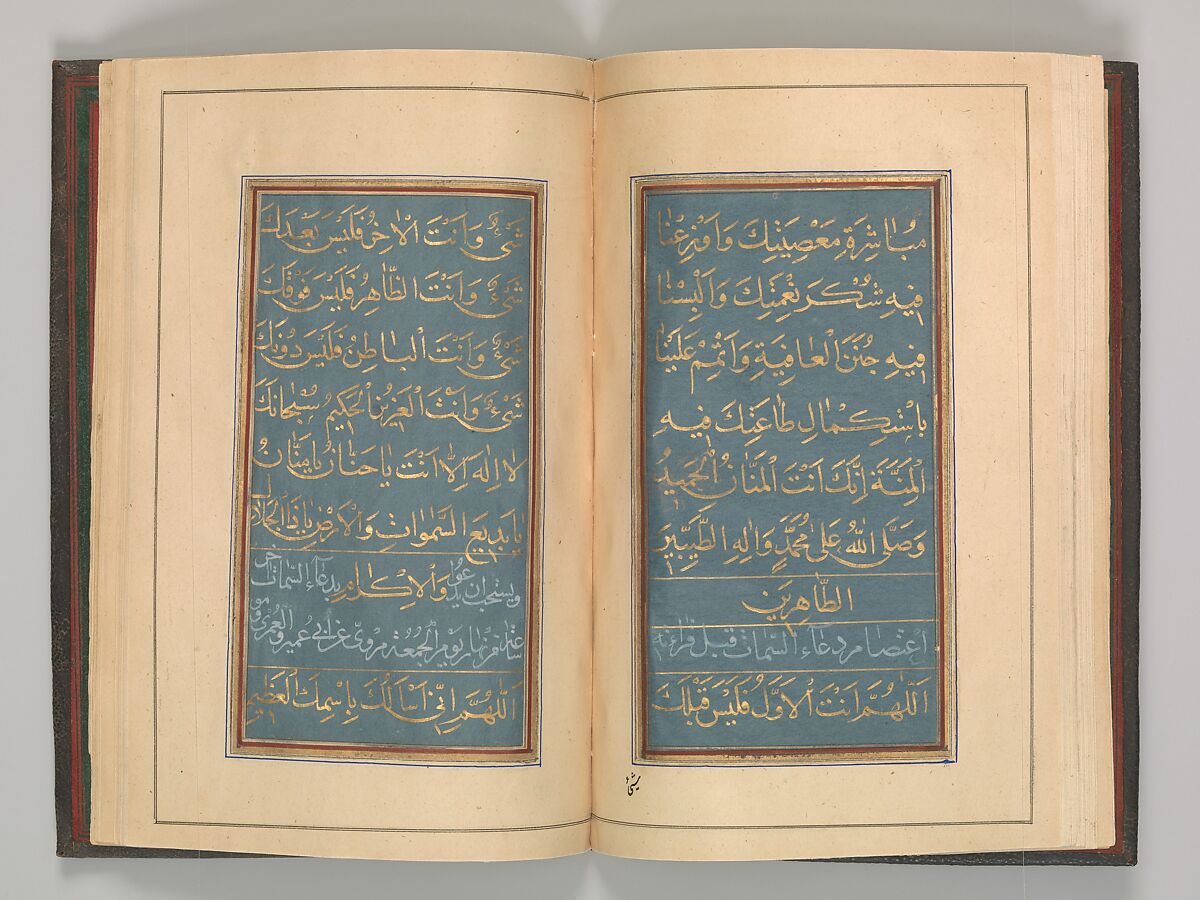 مُبَاشَرَةِ مَعْصِيَتِكَ وَاَوْزِعْنَا
فِيهِ شُكْرَ نِعْمَتِكَ وَاَلْبِسْنَا
فِيهِ جُنَنَ الْعَافِيَةِ وَاَتْمِمْ عَلَيْنَا
بِاسْتِكْمَالِ طَاعَتِكَ فِيهِ
الْمِنَّةَ اِنَّكَ اَنْتَ الْمَنَّانُ الْحَمِيدُ
وَصَلَّى اللهُ عَلٰى مُحَمَّدٍ وَاٰلِهِ الطَّيِّبِينَ
الطَّاهِرِينَ
دعاء السمات قبل قرائته
اَللّٰهُمَّ اَنْتَ الْاَوَّلُ فَلَيْسَ قَبْلَكَ
شئ
شَىْءٌ وَاَنْتَ الْاٰخِرُ فَلَيْسَ بَعْدَكَ
شَىْءٌ وَاَنْتَ الظَّاهِرُ فَلَيْسَ فَوْقَكَ
شَىْءٌ وَاَنْتَ الْبَاطِنُ فَلَيْسَ دُونَكَ
شَىْءٌ وَاَنْتَ الْعَزِيزُ الْحَكِيمُ سُبْحَانَكَ
لَا اِلٰهَ اِلَّا اَنْتَ يَا حَنَّانُ يَا مَنَّانُ
يَا بَدِيعَ السَّمٰوَاتِ وَالْاَرْضِ يَا ذَا الْجَلَالِ
وَالْاِكْرَامِ
ويستحب ان يدعو بدعاء السمات اخر
ساعة من نهار يوم الجمعة مروى عن ابى عمرو العمرى
اَللّٰهُمَّ اِنِّى اَسْاَلُكَ بِاسْمِكَ الْعَظِيمِ